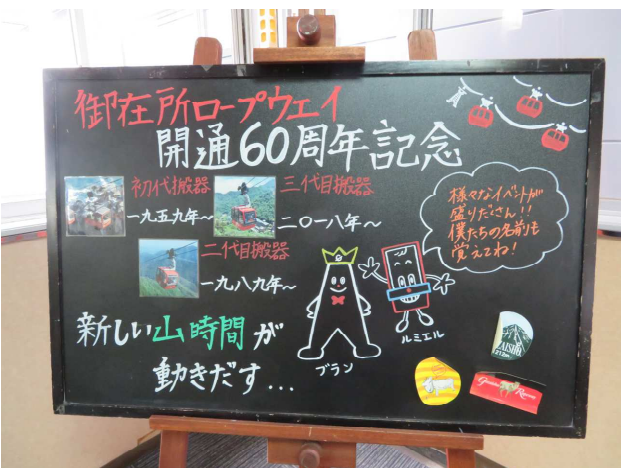 御在所ロープウェイ
開通60周年記念
初代搬器
一九五九年〜
三代目搬器
二〇一八年〜
二代目搬器
一九八九年〜
様々なイベントが
盛りだくさん!!
僕たちの名前も
覚えてね!
新しい山時間が
動きだす...
ブラン
ルミエル
1212m